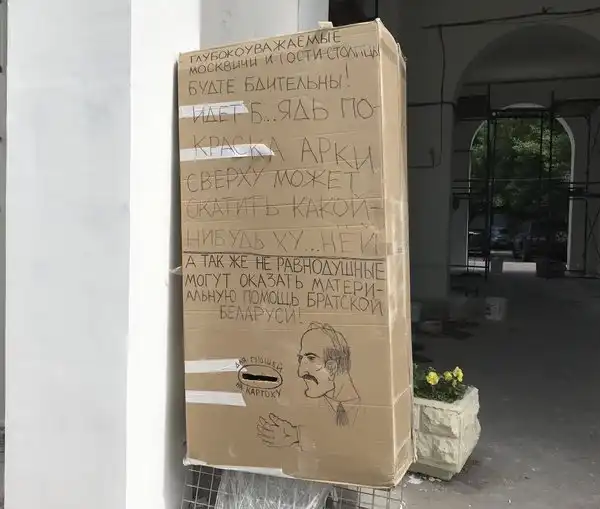 ГЛУБОКОУВАЖАЕМЫЕ
МОСКВИЧИ И ГОСТИ СТОЛИЦЫ
БУДТЕ БДИТЕЛЬНЫ!
ИДЕТ Б...ЯДЬ ПО-
КРАСКА АРКИ
СВЕРХУ МОЖЕТ
ОКАТИТЬ КАКОЙ-
НИБУДЬ ХУ...НЕЙ
А ТАК ЖЕ НЕ РАВНОДУШНЫЕ
МОГУТ ОКАЗАТЬ МАТЕРИ-
АЛЬНУЮ ПОМОЩЬ БРАТСКОЙ
БЕЛАРУСИ!
ДЛЯ
НА КАРТОКУ